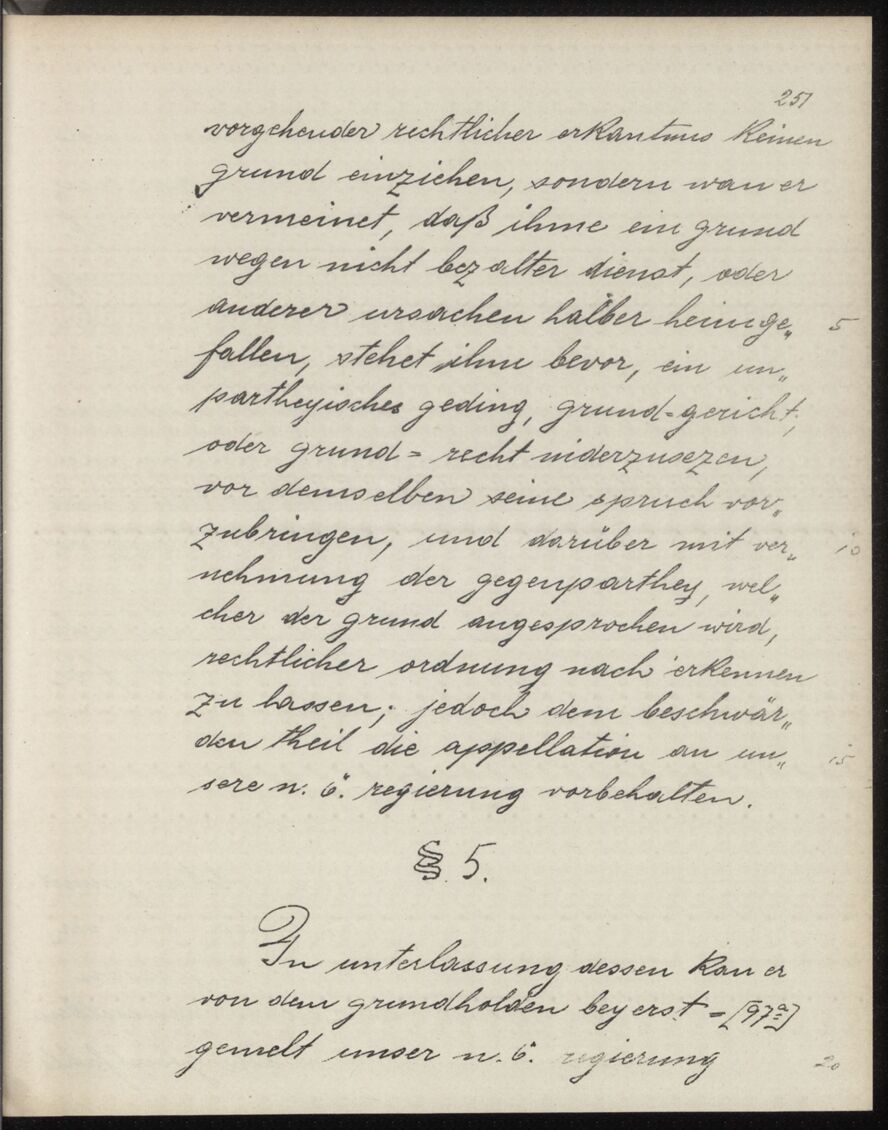 251
vorgehender rechtlicher erkantnus keinen
grund einziehen, sondern wan er
vermeinet, daß ihme ein grund
wegen nicht bezalter dienst, oder
anderer ursachen halber heimge„ 5
fallen, stehet ihm bevor, ein un„
partheyisches geding, grund=gericht,
oder grund=recht niderzusezen,
vor demselben seine spruch vor„
zubringen, und darüber mit ver„ 10
nehmung der gegenparthey, wel„
cher der grund angesprochen wird,
rechtlicher ordnung nach erkennen
zu lassen; jedoch dem beschwär„
den theil die appellation an un„ 15
sere n. ö. regierung vorbehalten.
§ 5.
In unterlassung dessen kan er
von dem grundholden bey erst=[97a]
gemelt unser n. ö. regierung 20